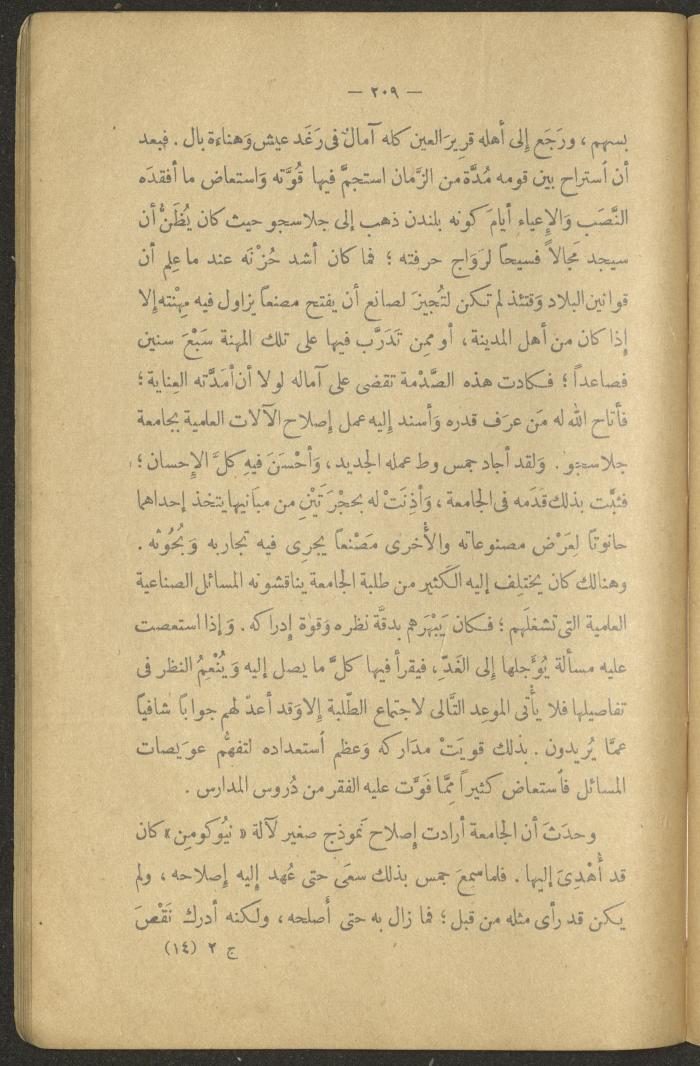 — ٢٠٩ —
بسهم ، ورَجَع إلى أهله قريرَ العين كله آمالٌ فى رَغَد عيش وَهناءة بال . فبعد
أن اُستراح بين قومه مُدَّة من الزَّمان استجمَّ فيها قُوَّته وَاستعاض ما أفقدَه
النَّصَب وَالإعياء أيامَ كونه بلندن ذهب إلى جلاسجو حيث كان يُظَنُّ أن
سيجد مَجالاً فسيحاً لرَوَاج حرفته ؛ فما كان أشد حُزْنَه عند ما علِم أن
قوانين البلاد وَقتئذ لم تكن لتُجيزَ لصانع أن يفتح مصنعاً يزاول فيه مِهْنته إلا
إذا كان من أهل المدينة ، أو ممن تَدَرَّب فيها على تلك المهنة سَبْعَ سنين
فصاعداً ؛ فكادت هذه الصَّدْمة تقضى على آماله لولا أن أمَدَّته العِناية ؛
فأتاح الله له مَن عرَف قدره وَأسند إليه عمل إصلاح الآلات العلمية بجامعة
جلاسجو . وَلقد أجاد جمس وط عمله الجديد ، وَأحْسَنَ فيهِ كلَّ الإحسان ؛
فثبَّت بذلك قدَمه فى الجامعة ، وَأذِنَتْ له بحجْرَتَيْنِ من مبانيها يتخذ إحداهما
حانوتًا لِعَرْض مصنوعاته والأُخرى مَصْنعاً يجرِى فيه تجاربه وَبُحُوثه .
وهنالك كان يختلِف إليه الكثير من طلبة الجامعة يناقشونه المسائل الصناعية
العلمية التى تشغلَهم ؛ فكان يَبْهَرهم بدقَّة نظره وَقوّة إدراكه . وَإذا استعصت
عليه مسألة يُؤَجلها إلى الغَدِّ ، فيقرأ فيها كلَّ ما يصل إليه وَيُنْعِمُ النظر فى
تفاصيلها فلا يأْتى الموعد التَّالى لاجتماع الطّلبة إلا وَقد أعدّ لهم جوابًا شافيًا
عمَّا يُريدون . بذلك قوِيَتْ مدَاركه وَعظم اُستعداده لتفهُّم عويصات
المسائل فاُستعاض كثيراً مِمَّا فَوَّت عليه الفقر من دُروس المدارس .
وحدَثَ أن الجامعة أرادت إصلاح نَموذج صغير لآلة « نيُوكومِن » كان
قد أُهْدِىَ إليها . فلما سمعَ جمس بذلك سعَى حتى عُهد إليه إصلاحه ، ولم
يكن قد رأى مثله من قبل ؛ فما زال به حتى أصلحه ، ولكنه أدرك نَقْصَ
ج ٢ (١٤)